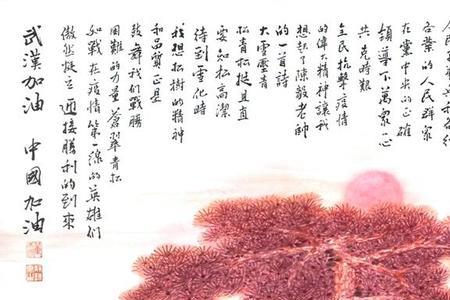 人民子弟兵和各行
各業的人民群衆
在黨中央的正確
領導下萬衆一心
共克時艱
全民抗擊疫情
的偉大精神讓我
想起了陳毅老師
的一首詩
大雪壓青
松青松挺且直
要知松高潔
待到雪化時
我想松樹的精神
和品質正是
鼓舞我們戰勝
困難的力量蒼翠青松
如戰在疫情第一線的英雄們
傲然挺立迎接勝利的到來
武漢加油 中國加油